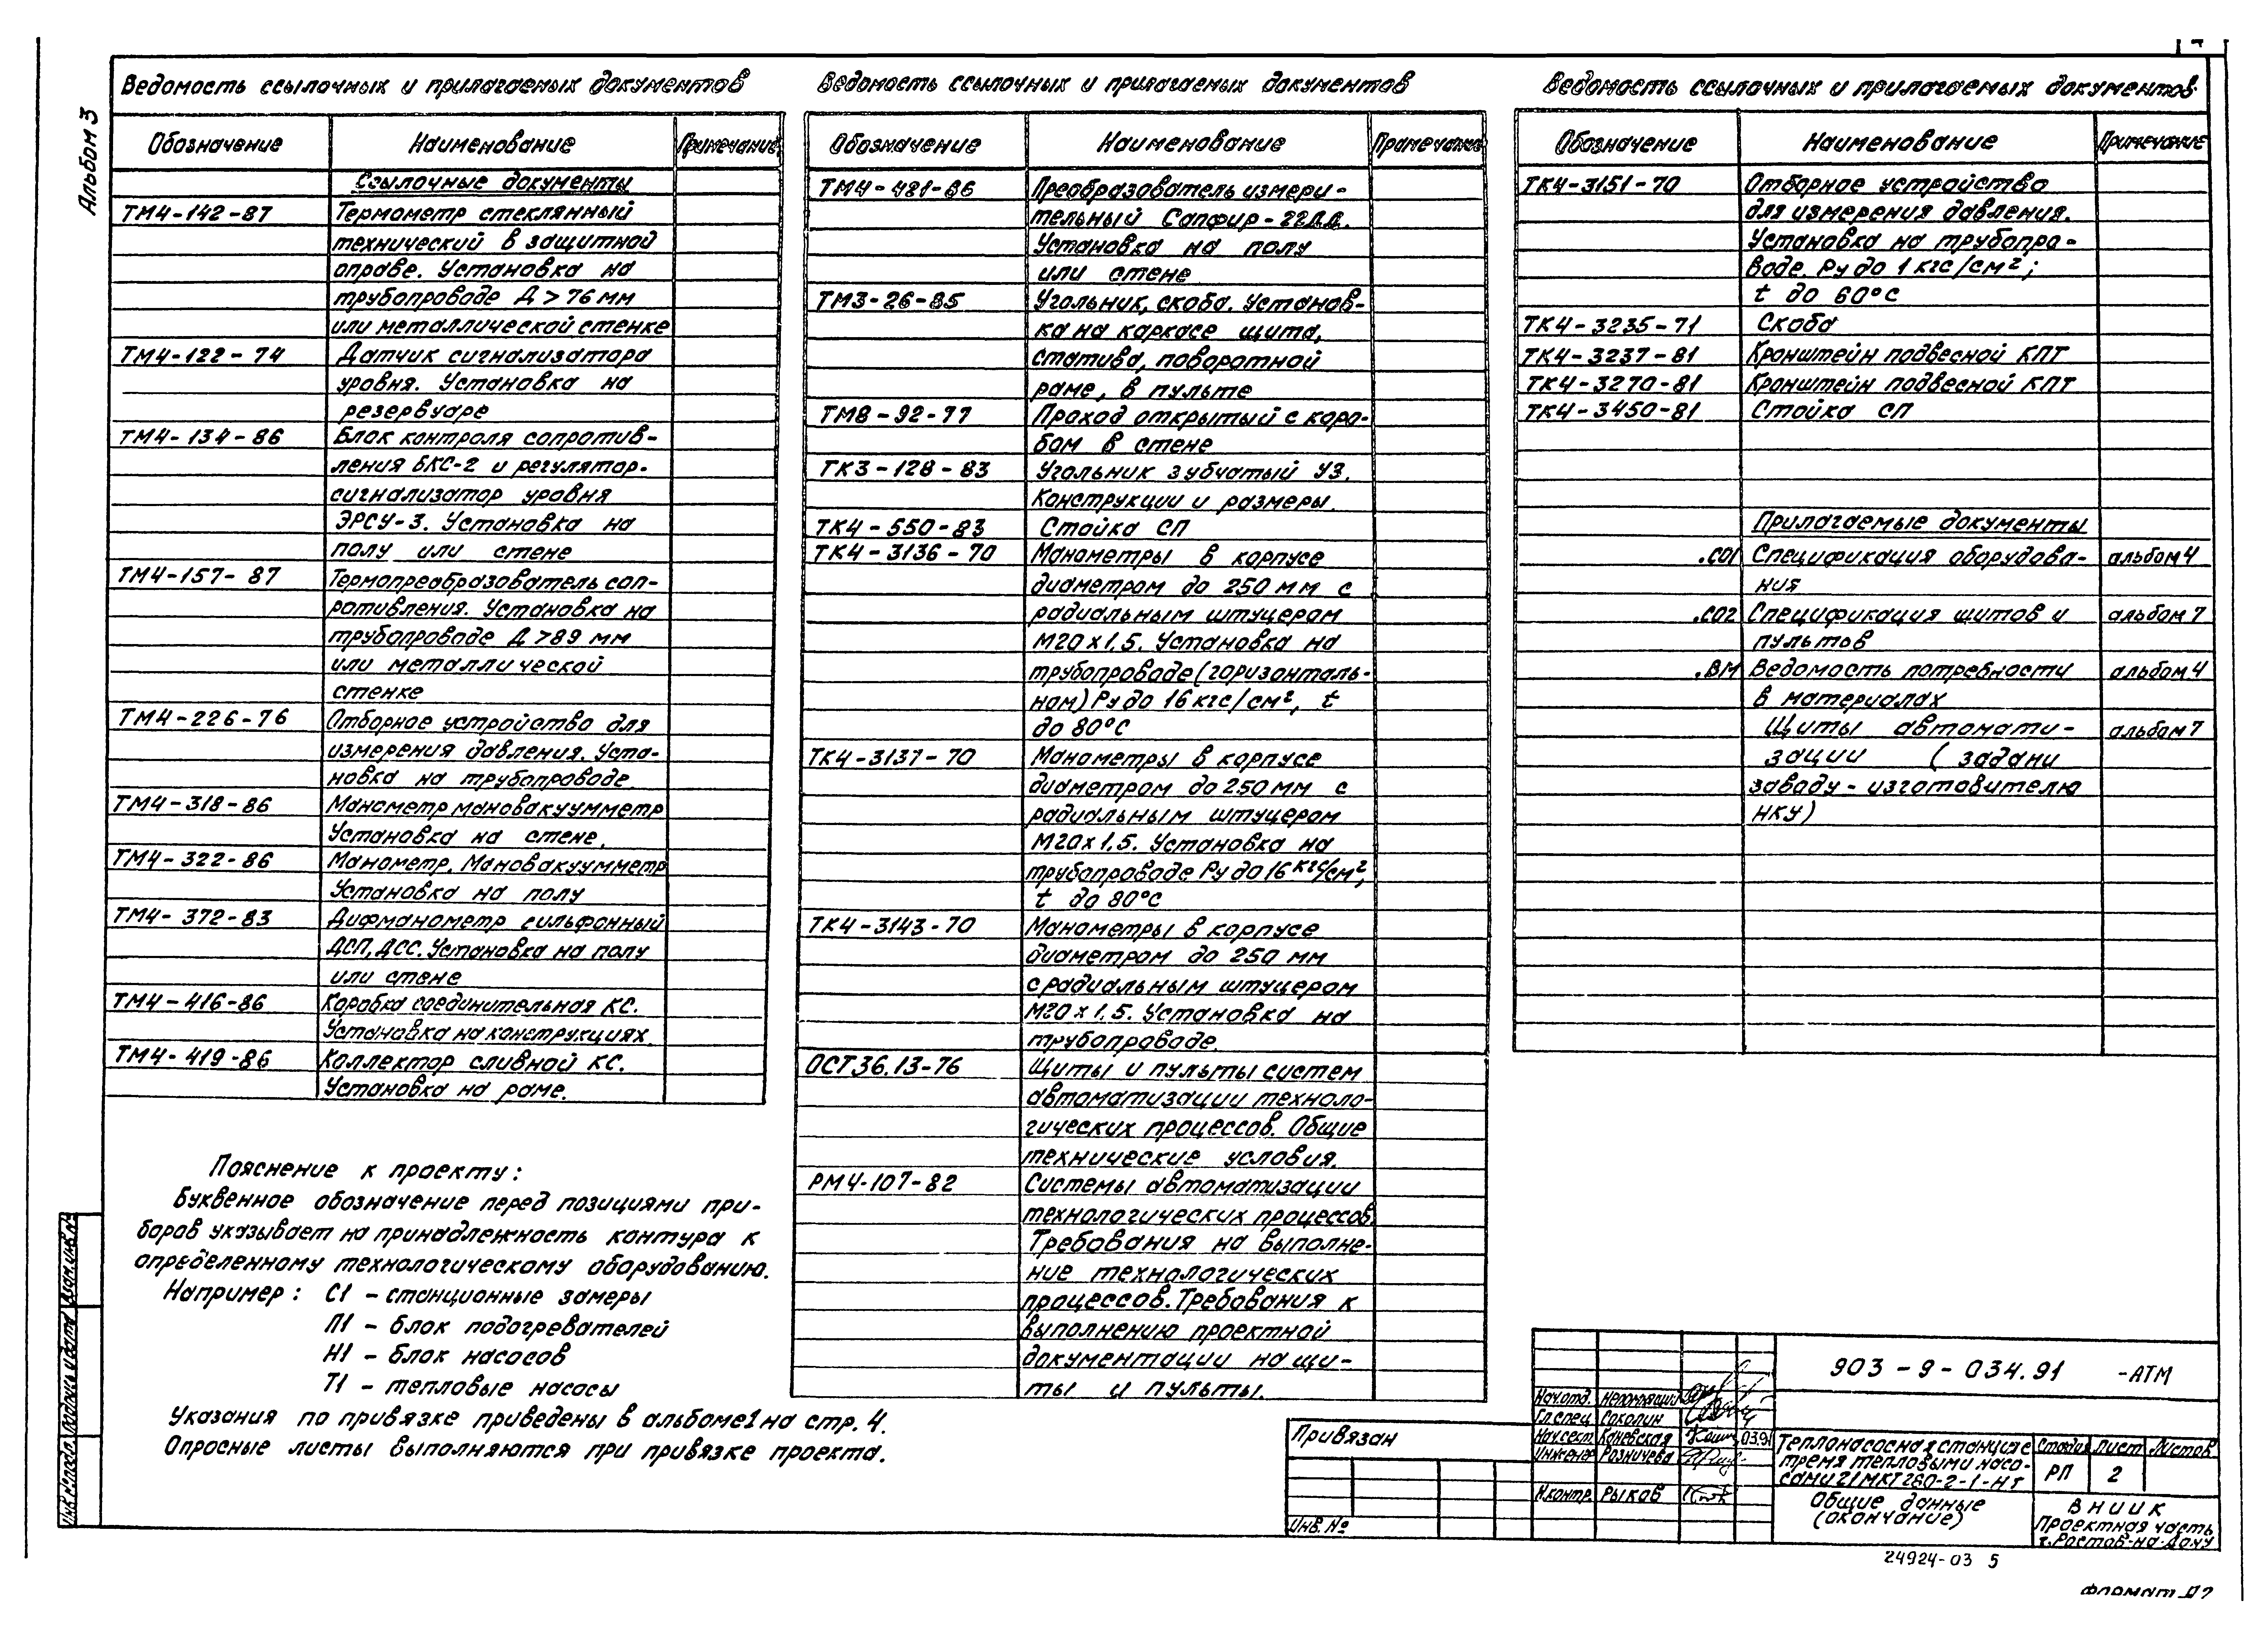 Альбом 3
Ведомость ссылочных и прилагаемых документов
Обозначение Наименование Примечание
Ссылочные документы
ТМ4-142-87 Термометр стеклянный
технический в защитной
оправе. Установка на
трубопроводе Д > 76 мм
или металлической стенке
ТМ4-122-74 Датчик сигнализатора
уровня. Установка на
резервуаре
ТМ4-134-86 Блок контроля сопротив-
ления БКС-2 и регулятор-
сигнализатор уровня
ЭРСУ-3. Установка на
полу или стене
ТМ4-157-87 Термопреобразователь соп-
ротивления. Установка на
трубопроводе Д >89 мм
или металлической
стенке
ТМ4-226-76 Отборное устройство для
измерения давления. Уста-
новка на трубопроводе.
ТМ4-318-86 Манометр мановакуумметр
Установка на стене.
ТМ4-322-86 Манометр. Мановакуумметр
Установка на полу
ТМ4-372-83 Дифманометр сильфонный
ДСП, ДСС. Установка на полу
или стене
ТМ4-416-86 Коробка соединительная КС.
Установка на конструкциях.
ТМ4-419-86 Коллектор сливной КС.
Установка на раме.
Пояснение к проекту:
Буквенное обозначение перед позициями при-
боров указывает на принадлежность контура к
определенному технологическому оборудованию.
Например: С1 - станционные замеры
П1 - блок подогревателей
Н1 - блок насосов
Т1 - тепловые насосы
Указания по привязке приведены в альбоме1 на стр. 4.
Опросные листы выполняются при привязке проекта.
Ведомость ссылочных и прилагаемых документов
Обозначение Наименование Примечание
ТМ4-481-86 Преобразователь измери-
тельный Сапфир-22ДД.
Установка на полу
или стене
ТМ3-26-85 Угольник, скоба. Установ-
ка на каркасе щита,
статива, поворотной
раме, в пульте
ТМ8-92-77 Проход открытый с коро-
бом в стене
ТК3-128-83 Угольник зубчатый УЗ.
Конструкции и размеры.
ТК4-550-83 Стойка СП
ТК4-3136-70 Манометры в корпусе
диаметром до 250 мм с
радиальным штуцером
М20х1,5. Установка на
трубопроводе (горизонталь-
ном) Ру до 16 кгс/см², t
до 80°С
ТК4-3137-70 Манометры в корпусе
диаметром до 250 мм с
радиальным штуцером
М20х1,5. Установка на
трубопроводе Ру до 16 кгс/см²,
t до 80°С
ТК4-3143-70 Манометры в корпусе
диаметром до 250 мм
с радиальным штуцером
М20х1,5. Установка на
трубопроводе.
ОСТ36.13-76 Щиты и пульты систем
автоматизации техноло-
гических процессов. Общие
технические условия.
РМ4-107-82 Системы автоматизации
технологических процессов.
Требования на выполне-
ние технологических
процессов. Требования к
выполнению проектной
документации на щи-
ты и пульты.
Ведомость ссылочных и прилагаемых документов
Обозначение Наименование Примечание
ТК4-3151-70 Отборное устройство
для измерения давления.
Установка на трубопро-
воде. Ру до 1 кгс/см²;
t до 60°С
ТК4-3235-71 Скоба
ТК4-3237-81 Кронштейн подвесной КПТ
ТК4-3270-81 Кронштейн подвесной КПТ
ТК4-3450-81 Стойка СП
Прилагаемые документы
.СО1 Спецификация оборудова- альбом 4
ния
.СО2 Спецификация щитов и альбом 7
пультов
.ВМ Ведомость потребности альбом 4
в материалах
Щиты автомати- альбом 7
зации (задани
заводу-изготовителю
НКУ)
903-9-034.91 -АТМ
Нач.отд.
Гл.спец. Соколин
Нач.сект. Каневская 03.91
Инженер Розничева
Н.контр. Рыков
Теплонасосная станция с
тремя тепловыми насо-
сами 21МКТ280-2-1-НТ
Стадия Лист Листов
РП 2
Общие данные
(окончание)
ВНИИК
Проектная часть
г.Ростов-на-Дону
Привязан
Инв. №
Инв.№подл. Подпись и дата Взам.инв.№
24924-03 5
Формат А2